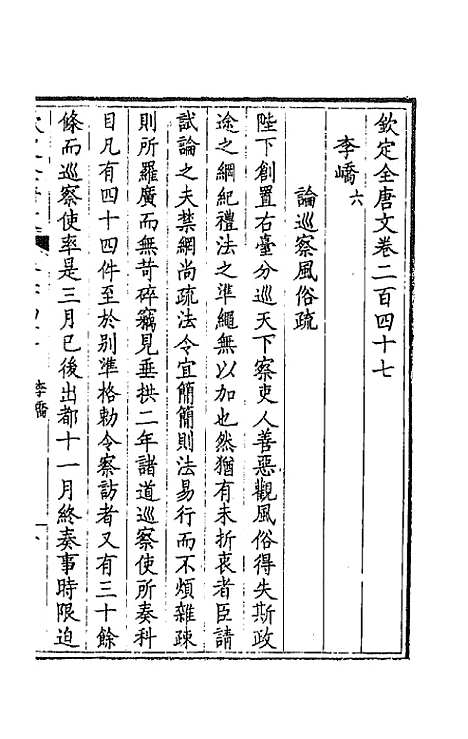 欽定全唐文卷二百四十七
李嶠六
論巡察風俗疏
陛下創置右臺分巡天下察吏人善惡觀風俗得失斯政
途之綱紀禮法之準繩無以加也然猶有未折衷者臣請
試論之夫禁網尚疏法令宜簡簡則法易行而不煩雜疎
則所羅廣而無苛碎竊見垂拱二年諸道巡察使所奏科
目凡有四十四件至於別準格勅令察訪者又有三十餘
條而巡察使率是三月已後出都十一月終奏事時限迫
李嶠